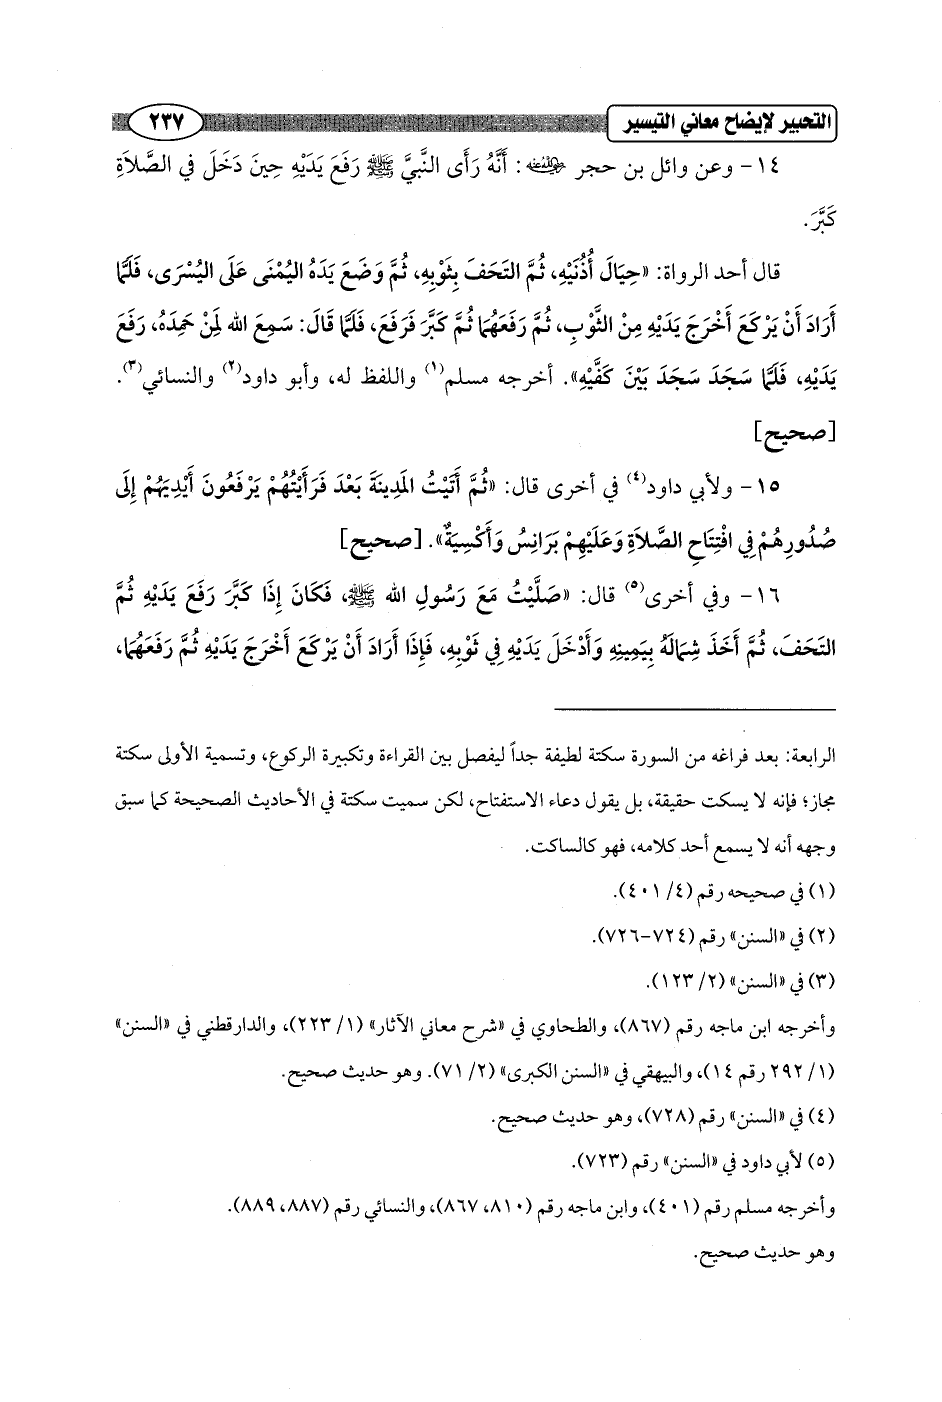 التحبير لإيضاح معاني التيسير ٢٣٧
١٤- وعن وائل بن حجر رضي الله عنه: أَنَّهُ رَأَى النَّبِيَّ ﷺ رَفَعَ يَدَيْهِ حِينَ دَخَلَ في الصَّلاَةِ
كَبَّرَ.
قال أحد الرواة: «حِيَالَ أُذُنَيْهِ، ثُمَّ التَحَفَ بِثَوْبِهِ، ثُمَّ وَضَعَ يَدَهُ اليُمْنَى عَلَى اليُسْرَى، فَلَمَّا
أَرَادَ أَنْ يَرْكَعَ أَخْرَجَ يَدَيْهِ مِنْ الثَّوْبِ، ثُمَّ رَفَعَهُمَا ثُمَّ كَبَّرَ فَرَفَعَ، فَلَمَّا قَالَ: سَمِعَ الله لِمَنْ حَمِدَهُ، رَفَعَ
يَدَيْهِ، فَلَمَّا سَجَدَ سَجَدَ بَيْنَ كَفَّيْهِ». أخرجه مسلم(١) واللفظ له، وأبو داود(٢) والنسائي(٣).
[صحيح]
١٥- ولأبي داود(٤) في أخرى قال: «ثُمَّ أَتَيْتُ المَدِينَةَ بَعْدَ فَرَأَيْتُهُمْ يَرْفَعُونَ أَيْدِيَهُمْ إِلَى
صُدُورِهُمْ فِي افْتِتَاحِ الصَّلاَةِ وَعَلَيْهِمْ بَرَانِسُ وَأَكْسِيَةٌ». [صحيح]
١٦- وفي أخرى(٥) قال: «صَلَّيْتُ مَعَ رَسُولِ الله ﷺ، فَكَانَ إِذَا كَبَّرَ رَفَعَ يَدَيْهِ ثُمَّ
التَحَفَ، ثُمَّ أَخَذَ شِمَالَهُ بِيَمِينِهِ وَأَدْخَلَ يَدَيْهِ فِي ثَوْبِهِ، فَإِذَا أَرَادَ أَنْ يَرْكَعَ أَخْرَجَ يَدَيْهِ ثُمَّ رَفَعَهُمَا،
الرابعة: بعد فراغه من السورة سكتة لطيفة جداً ليفصل بين القراءة وتكبيرة الركوع، وتسمية الأولى سكتة
مجاز؛ فإنه لا يسكت حقيقة، بل يقول دعاء الاستفتاح، لكن سميت سكتة في الأحاديث الصحيحة كما سبق
وجهه أنه لا يسمع أحد كلامه، فهو كالساكت.
(١) في صحيحه رقم (٤/ ٤٠١).
(٢) في «السنن» رقم (٧٢٤-٧٢٦).
(٣) في «السنن» (٢/ ١٢٣).
وأخرجه ابن ماجه رقم (٨٦٧)، والطحاوي في «شرح معاني الآثار» (١/ ٢٢٣)، والدارقطني في «السنن»
(١/ ٢٩٢ رقم ١٤)، والبيهقي في «السنن الكبرى» (٢/ ٧١). وهو حديث صحيح.
(٤) في «السنن» رقم (٧٢٨)، وهو حديث صحيح.
(٥) لأبي داود في «السنن» رقم (٧٢٣).
وأخرجه مسلم رقم (٤٠١)، وابن ماجه رقم (٨١٠، ٨٦٧)، والنسائي رقم (٨٨٧، ٨٨٩).
وهو حديث صحيح.